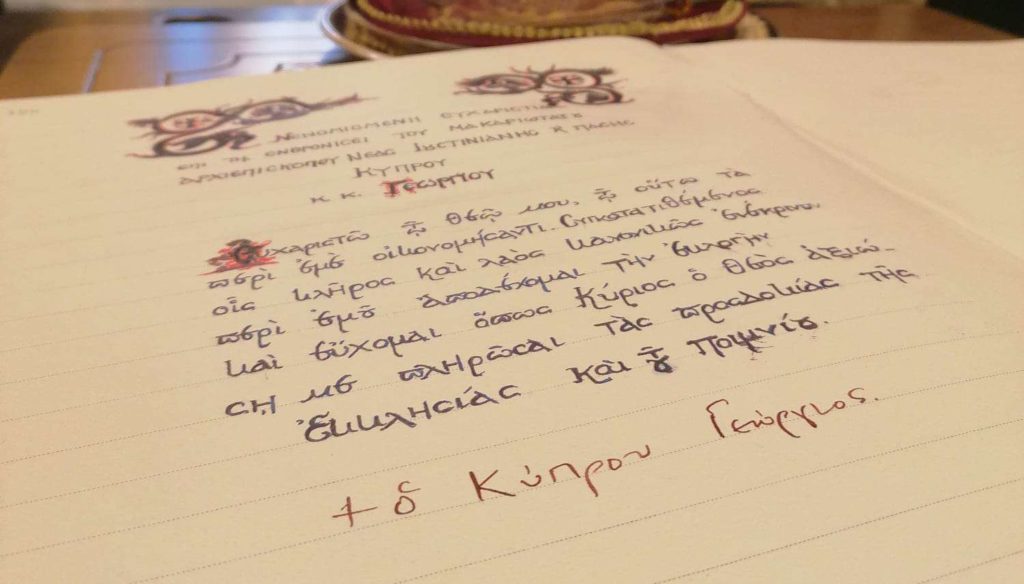 ΝΕΝΟΜΙΣΜΕΝΗ ΕΥΧΑΡΙΣΤΙΑ
ΕΠΙ ΤΗ ΕΝΘΡΟΝΙΣΕΙ ΤΟΥ ΜΑΚΑΡΙΩΤΑΤΟΥ
ΑΡΧΙΕΠΙΣΚΟΠΟΥ ΝΕΑΣ ΙΟΥΣΤΙΝΙΑΝΗΣ ΠΑΣΗΣ
ΚΥΠΡΟΥ
Κ. Κ. ΓΕΩΡΓΙΟΥ
Εὐχαριστῶ τῷ Θεῷ μου, τῷ οὕτω τὰ
περὶ ἐμὲ οἰκονομήσαντι. Συγκατατιθέμενος
οἷς κλῆρος καὶ λαὸς κανονικῶς ἐνέκριναν
περὶ ἐμοῦ ἀποδέχομαι τὴν ἐκλογὴν
καὶ εὔχομαι ὅπως Κύριος ὁ Θεὸς ἀξιώ-
σῃ με πληρῶσαι τὰς προσδοκίας τῆς
Ἐκκλησίας καὶ τοῦ ποιμνίου.
+ ὁ Κύπρου Γεώργιος.